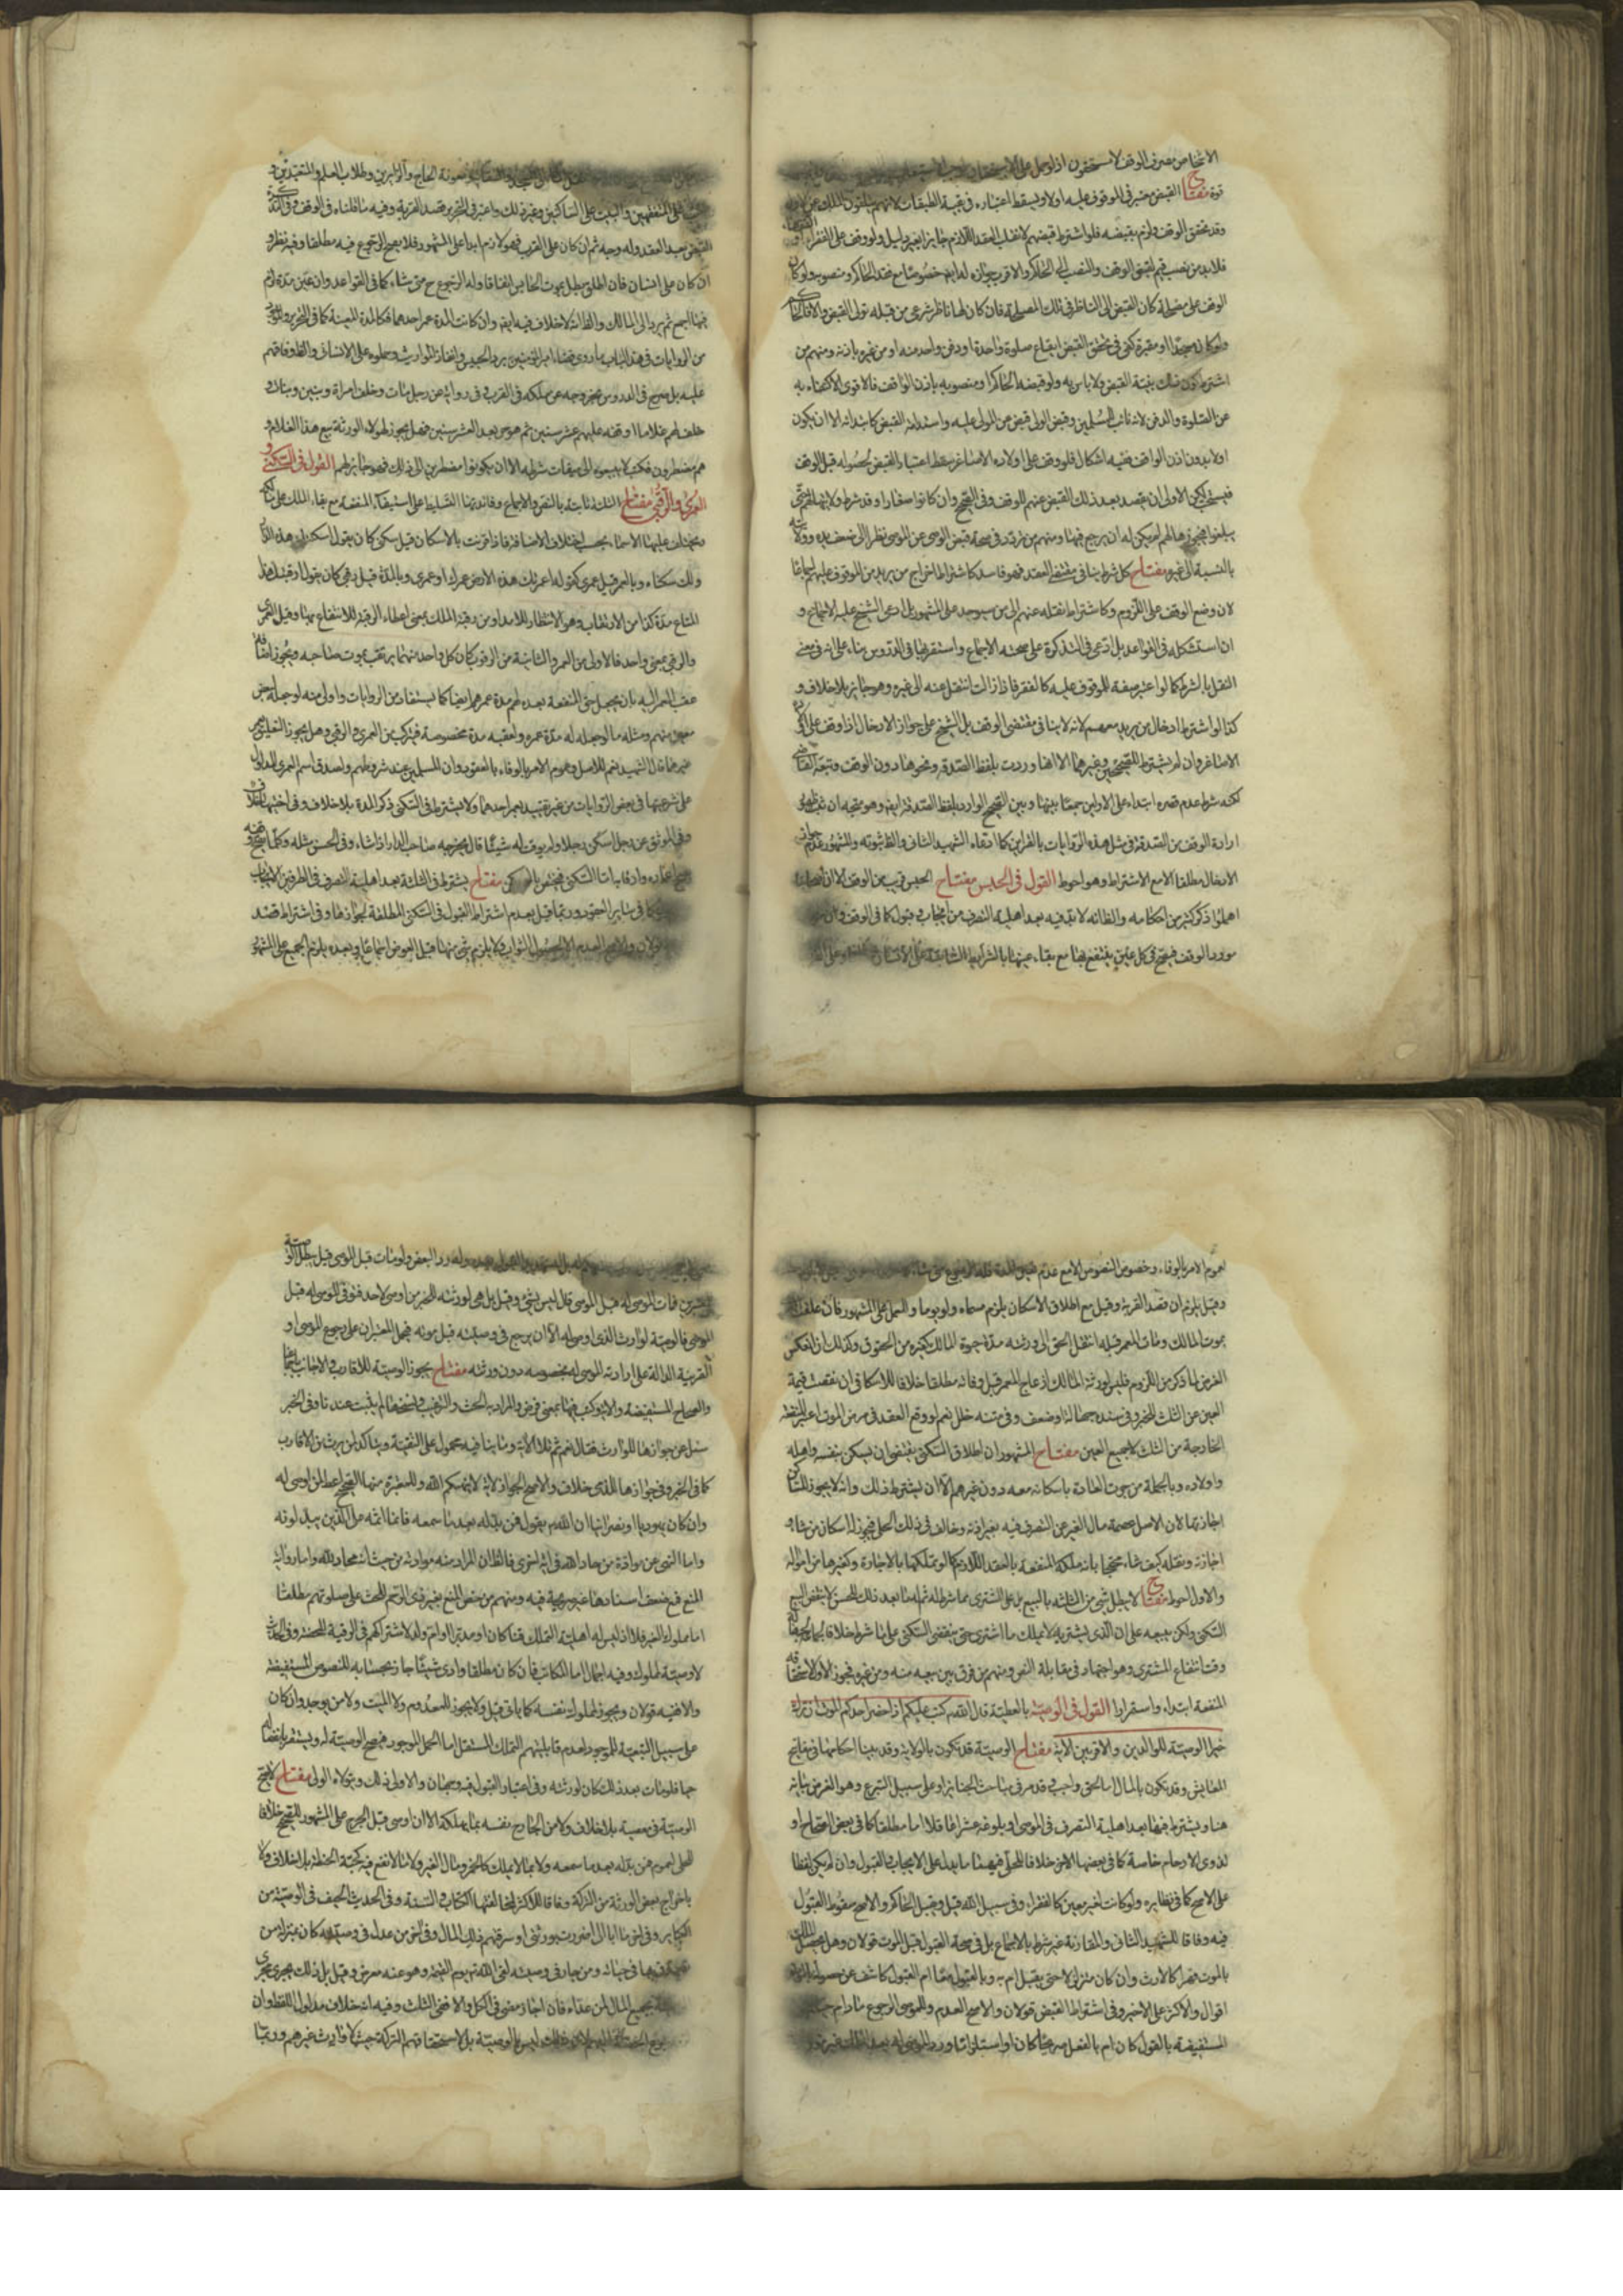 الاشخاص مصرف الوقف لا مستحقون اذ لو حمل على الاستحقاق
قوة مفتاح القبض معتبر في الموقوف عليه اولا ويسقط اعتباره في بقية الطبقات لانهم يتلقون الملك عن الاول
وقد تحقق الوقف ولزم بقبضه فلو اشترط قبضهم لانقلب العقد اللازم جايزا بغير دليل ولو وقف على الفقراء او الفقهاء
فلابد من نصب قيم لقبض الوقف والنصب الى الحاكم والاقرب جوازه له ايضا خصوصا مع فقد الحاكم ومنصوبه ولو كان
الوقف على مصلحة كان القبض الى الناظر في تلك المصلحة فان كان لها ناظر شرعي من قبله تولى القبض والا فالحاكم
ولو كان مسجدا او مقبرة كفى في تحقق القبض ايقاع صلوة واحدة او دفن واحد منه او من غيره باذنه ومنهم من
اشترط كون ذلك بنية القبض ولا باس به ولو قبضه الحاكم او منصوبه باذن الواقف فالاقوى الاكتفاء به
عن الصلوة والدفن لانه نائب المسلمين وقبض الولي قبض من المولى عليه واستدامة القبض كابتدائه الا ان يكون
اولا بدون اذن الواقف ففيه اشكال فلو وقف على اولاده الاصاغر سقط اعتبار القبض لحصوله قبل الوقف
فيستصحب لكن الاولى ان يقصد بعد ذلك القبض عنهم للوقف وفي الصحيح وان كانوا صغارا وقد شرط ولايتها لهم حتى
يبلغوا فيحوزها لهم لم يكن له ان يرجع فيها ومنهم من تردد في صحة قبض الوصي عن الموصى نظرا الى ضعف يده وولايته
بالنسبة الى غيره مفتاح كل شرط ينافي مقتضى العقد فهو فاسد كاشتراط اخراج من يريد من الموقوف عليهم اجماعا
لان وضع الوقف على اللزوم وكاشتراط نقله عنهم الى من سيوجد على المشهور بل ادعى الشيخ عليه الاجماع و
ان استشكله في القواعد بل ادعى في التذكرة على صحته الاجماع واستقربها في الدروس بناء على انه في معنى
النقل بالشرط كما لو اعتبر صفة للموقوف عليه كالفقر فاذا زالت انتقل عنه الى غيره وهو جايز بلا خلاف و
كذا لو اشترط ادخال من يريد معهم لانه لا ينافي مقتضى الوقف بل الشيخ على جواز الادخال اذا وقف على اولاده
الاصاغر وان لم يشترط للصحيحين وغيرهما الا انها وردت بلفظ الصدقة ونحوها دون الوقف وتبعه القاضي
لكنه شرط عدم قصره ابتداء على الاولين جمعا بينها وبين الصحيح الوارد بلفظ الصدقة ايضا وهو متجه ان ثبت
ارادة الوقف من الصدقة في مثل هذه الروايات بالقراين كما ادعاه الشهيد الثاني والظ ثبوته والمشهور عدم جواز
الادخال مطلقا الا مع الاشتراط وهو احوط القول في الحبس مفتاح الحبس قريب من الوقف الا ان اصحابنا
اهملوا ذكر كثير من احكامه والظ انه لابد فيه بعد اهلية التصرف من ايجاب وقبول كما في الوقف وان
مورد الوقف فيصح في كل عين ينتفع بها مع بقاء عينها بالشرايط السابقة
معونة الحاج والزايرين وطلاب العلم والمتعبدين و
على المتفقهين والبيت على المساكين وغير ذلك واعتبر في التحرير قصد القربة وفيه ما قلناه في الوقف وفي التذكرة
القبض بعد العقد وله وجه ثم ان كان على القرب فهو لازم ابدا على المشهور فلا يصح الرجوع فيه مطلقا وفيه نظر و
ان كان على انسان فان اطلق بطل بموت الحابس اتفاقا وله الرجوع ح متى شاء كما في القواعد وان عين مدة لزم
فيها اجمع ثم يرد الى المالك والظ انه لا خلاف فيه ايضا وان كانت المدة عمر احدهما فكالمدة المعينة كما في التحرير
من الروايات في هذا الباب ما روى قضاء امير المؤمنين برد الحبيس وانفاذ المواريث وحملوه على الانسان والظ وفاقهم
عليه بل صرح في الدروس بخروجه عن ملكه في القرب وفي رواية عن رجل مات وخلف امراة وبنين وبنات و
خلف لهم غلاما اوقفه عليهم عشر سنين ثم هو حر بعد العشر سنين فهل يجوز لهؤلاء الورثة بيع هذا الغلام و
هم مضطرون فكتب لا يبيعوه الى ميقات شرطه الا ان يكونوا مضطرين الى ذلك فهو جايز لهم القول في السكنى و
العمرى والرقبى مفتاح الثلثة ثابتة بالنص والاجماع وفائدتها التسليط على استيفاء المنفعة مع بقاء الملك على مالكه
ويختلف عليها الاسماء بحسب اختلاف الاضافة فاذا قرنت بالاسكان قيل سكنى كان يقول اسكنتك هذه الدار
ولك سكناه وبالعمر قيل عمرى كقوله اعمرتك هذه الارض عمرك او عمرى وبالمدة قيل رقبى كان يقول ارقبتك هذا
المتاع مدة كذا من الارتقاب وهو الانتظار للامد او من رقبة الملك بمعنى اعطاء الرقبة للانتفاع بها وقيل العمرى
والرقبى بمعنى واحد فالاولى من العمر والثانية من الرقوب كان كل واحد منهما يرتقب بموت صاحبه ويجوز اضافة
عقب المعمر اليه بان يجعل حق المنفعة بعده لهم مدة عمرهم ايضا كما يستفاد من الروايات واولى منه لو جعله لبعض
معين منهم ومثله ما لو جعله له مدة عمره ولعقبه مدة مخصوصة فيتركب من العمرى والرقبى وهل يجوز التعليق بعمر
غيرهما قال الشهيد نعم للاصل وعموم الامر بالوفاء بالعقود وان المسلمين عند شروطهم ولصدق اسم العمرى المدلول
على شرعيتها في بعض الروايات من غير تقييد بعمر احدهما ولا يشترط في السكنى ذكر المدة بلا خلاف وفي اختيها خلاف
وفي الموثق عن رجل اسكن رجلا ولم يوقت له شيئا قال يخرجه صاحب الدار اذا شاء وفي الحسن مثله وكلما صح وقفه
صح اعماره وارقابه اما السكنى فيختص بالمسكن مفتاح يشترط في الثلثة بعد اهلية التصرف في الطرفين الايجاب
كما في ساير العقود وربما قيل بعدم اشتراط القبول في السكنى المطلقة لجوازها وفي اشتراط قصد
قولان والاصح العدم الا لحصول الثواب ولا يلزم شئ منها قبل القبض اجماعا وبعده يلزم الجميع على المشهور
لعموم الامر بالوفاء وخصوص النصوص الا مع عدم تعيين المدة فله الرجوع متى شاء
وقيل يلزم ان قصد القربة وقيل مع اطلاق الاسكان يلزم مسماه ولو يوما والعمل على المشهور فان علقت
بموت المالك ومات المعمر قبله انتقل الحق الى ورثته مدة حيوة المالك كغيره من الحقوق وكذلك ان انعكس
الفرض لما ذكر من اللزوم فليس لورثة المالك ازعاج المعمر قبل وفاته مطلقا خلافا للاسكافي ان نقصت قيمة
العين عن الثلث للخبر وفي سنده جهالة او ضعف وفي متنه خلل نعم لو وقع العقد في مرض الموت اعتبر المنفعة
الخارجة من الثلث لا جميع العين مفتاح المشهور ان اطلاق السكنى يقتضى ان يسكن بنفسه واهله
واولاده وبالجملة من جرت العادة باسكانه معه دون غيرهم الا ان يشترط ذلك وانه لا يجوز للساكن
اجازتها لان الاصل عصمة مال الغير عن التصرف فيه بغير اذنه وخالف في ذلك الحلي فجوز له اسكان من شاء و
اجازته ونقله كيف شاء محتجا بانه ملك المنفعة بالعقد اللازم كما لو تملكها بالاجارة وكغيرها من امواله
والاول احوط مفتاح لا يبطل شئ من الثلثة بالبيع بل على المشترى مما شرط له ثم لها بعد ذلك للحسن لا ينقض البيع
السكنى ولكن يبيعه على ان الذي يشتريه لا يملك ما اشترى حتى ينقضى السكنى على ما شرط خلافا لجماعة لجهالة
وقت انتفاع المشترى وهو اجتهاد في مقابلة النص ومنهم من فرق بين بيعه منه ومن غيره فجوز الاول لاستحقاقه
المنفعة ابتداء واستمرارا القول في الوصية بالعطية قال الله تم كتب عليكم اذا حضر احدكم الموت ان ترك
خيرا الوصية للوالدين والاقربين الاية مفتاح الوصية قد تكون بالولاية وقد بينا احكامها في مفاتيح
المعايش وقد تكون بالمال اما لحق واجب وقد مر في مباحث الجنايز او على سبيل التبرع وهو الغرض بيانه
هنا ويشترط فيها بعد اهلية التصرف في الموصى او بلوغه عشرا عاقلا اما مطلقا كما في بعض الصحاح او
لذوى الارحام خاصة كما في بعضها الاخر خلافا للحلي فيهما ما يدل على الايجاب والقبول وان لم يكن لفظا
على الاصح كما في نظايره ولو كانت لغير معين كالفقراء وفي سبيل الله قيل ويقبل الحاكم والاصح سقوط القبول
فيه وفاقا للشهيد الثاني والمقارنة غير شرط بالاجماع بل في صحة القبول قبل الموت قولان وهل يحصل الملك
بالموت قهرا كالارث وان كان متزلزلا حتى يقبل ام به وبالقبول معا ام القبول كاشف عن حصوله بالموت
اقوال والاكثر على الاخير وفي اشتراط القبض قولان والاصح العدم وللموصى الرجوع ما دام حيا
المستفيضة بالقول كان ام بالفعل صريحا كان او استلزاما
ولو رد البعض ولو مات قبل الموصى قيل بطل الوصية
فمات الموصى له قبل الموصى قال ليس بشئ وقيل بل هي لورثته للخبر من اوصى لاحد فتوفى الموصى له قبل
الموصى فالوصية لوارث الذي اوصى له الا ان يرجع في وصيته قبل موته فيحمل المعتبران على رجوع الموصى او
القرينة الدالة على ارادته الموصى له بخصوصه دون ورثته مفتاح يجوز الوصية للاقارب والاجانب بالاجماع
والصحاح المستفيضة والاية وكتب فيها بمعنى فرض والمراد به الحث والترغيب ونسخها لم يثبت عندنا وفي الخبر
سئل عن جوازها للوارث فقال نعم ثم تلا الاية وما ينافيه محمول على التقية ويتاكد لمن يرث من الاقارب
كما في الخبر وفي جوازها للذمى خلاف والاصح الجواز لاية لا ينهيكم الله وللمعتبرة منها الصحيح اعط لمن اوصى له
وان كان يهوديا او نصرانيا ان الله تم يقول فمن بدله بعد ما سمعه فانما اثمه على الذين يبدلونه
واما النهى عن موادة من حاد الله في اية اخرى فالظ ان المراد منه موادته من حيث انه محاد لله واما رواية
المنع فمع ضعف اسنادها غير صريحة فيه ومنهم من خص المنع بغير ذى الرحم للحث على صلوتهم مطلقا
اما مملوك الغير فلا اذ ليس له اهلية التملك قنا كان او مدبرا او ام ولد لاشتراكهم في الرقية المحضة وفي الحديث
لا وصية لمملوك وفيه اجمال اما المكاتب فان كان مطلقا وادى شيئا جاز بحسابه للنصوص المستفيضة
والا ففيه قولان ويجوز لمملوك نفسه كما ياتى قيل ولا يجوز للمعدوم ولا الميت ولا من يوجد وان كان
على سبيل التبعية للموجود لعدم قابليتهم التملك المستقل اما الحمل الموجود فيصح الوصية له ويستقر بانفصاله
حيا فلو مات بعد ذلك كان لورثته وفي اعتبار القبول فيه وجهان والاولى ذلك ويتولاه الولى مفتاح لا يصح
الوصية في معصية بلا خلاف ولا من الجارح نفسه بما يهلكه الا ان اوصى قبل الجرح على المشهور للصحيح خلافا
للحلي لعموم فمن بدله بعد ما سمعه ولا بما لا يملك كالخمر ومال الغير ولا ما لا نفع فيه كحبة الحنطة بلا خلاف ولا
باخراج بعض الورثة من التركة وفاقا للاكثر لمخالفتها الكتاب والسنة وفي الحديث الحيف في الوصية من
الكباير وفي اخر ما ابالى اضررت بورثتى او سرقتهم ذلك المال وفي اخر من عدل في وصيته كان بمنزلة من
تصدق بها في حياته ومن جار في وصيته لقى الله تم يوم القيمة وهو عنه معرض وقيل بل ذلك يجرى مجرى
بجميع المال لمن عداه فان اجاز مضى في الكل والا فمن الثلث وفيه انه خلاف مدلول اللفظ وان